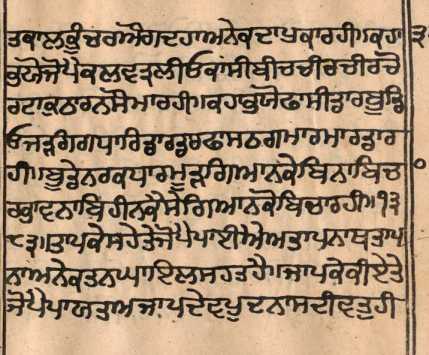 ਤਕਾਲਕੁੰਚਰਅੌਗਦਹਾਅਨੇਕਦਾਪੁਕਾਰਹੀ॥ਕਹਾ ੩
ਭਯੋਜੋਪੈਕਲਵਤ੍ਰਲੀਓਕਾਂਸੀਬੀਚਚੀਰਚੀਰਚੋ
ਰਟਾਕੁਠਾਰਨਸੌਮਾਰਹੀ॥ਕਹਾਭਯੋਫਾਸੀਡਾਰਬੂਡਿ
ਓਜੜਗੰਗਧਾਰਿਡਾਰਡਾਰਫਾਸਠਗਮਾਰਮਾਰਡਾਰ
ਹੀ॥ਬੂਡੇਨਰਕਧਾਰਮੂੜਗਿਆਨਕੇਬਿਨਾਬਿਚ ੦
ਰਭਾਵਨਾਬਿਹੀਨਕੈਸੇਗਿਆਨਕੋਬਿਚਾਰਹੀ॥੧੩
੮੩॥ਤਾਪਕੇਸਹੇਤੇਜੋਪੈਪਾਈਐਅਤਾਪਨਾਥਤਾਪ
ਨਾਅਨੇਕਤਨਘਾਇਲਸਹਤਹੈ॥ਜਾਪਕੇਕੀਏਤੇ
ਜੋਪੈਪਾਯਤਅਜਾਪਦੇਵਪੂਦਨਾਸਦੀਵਤੁਹੀ